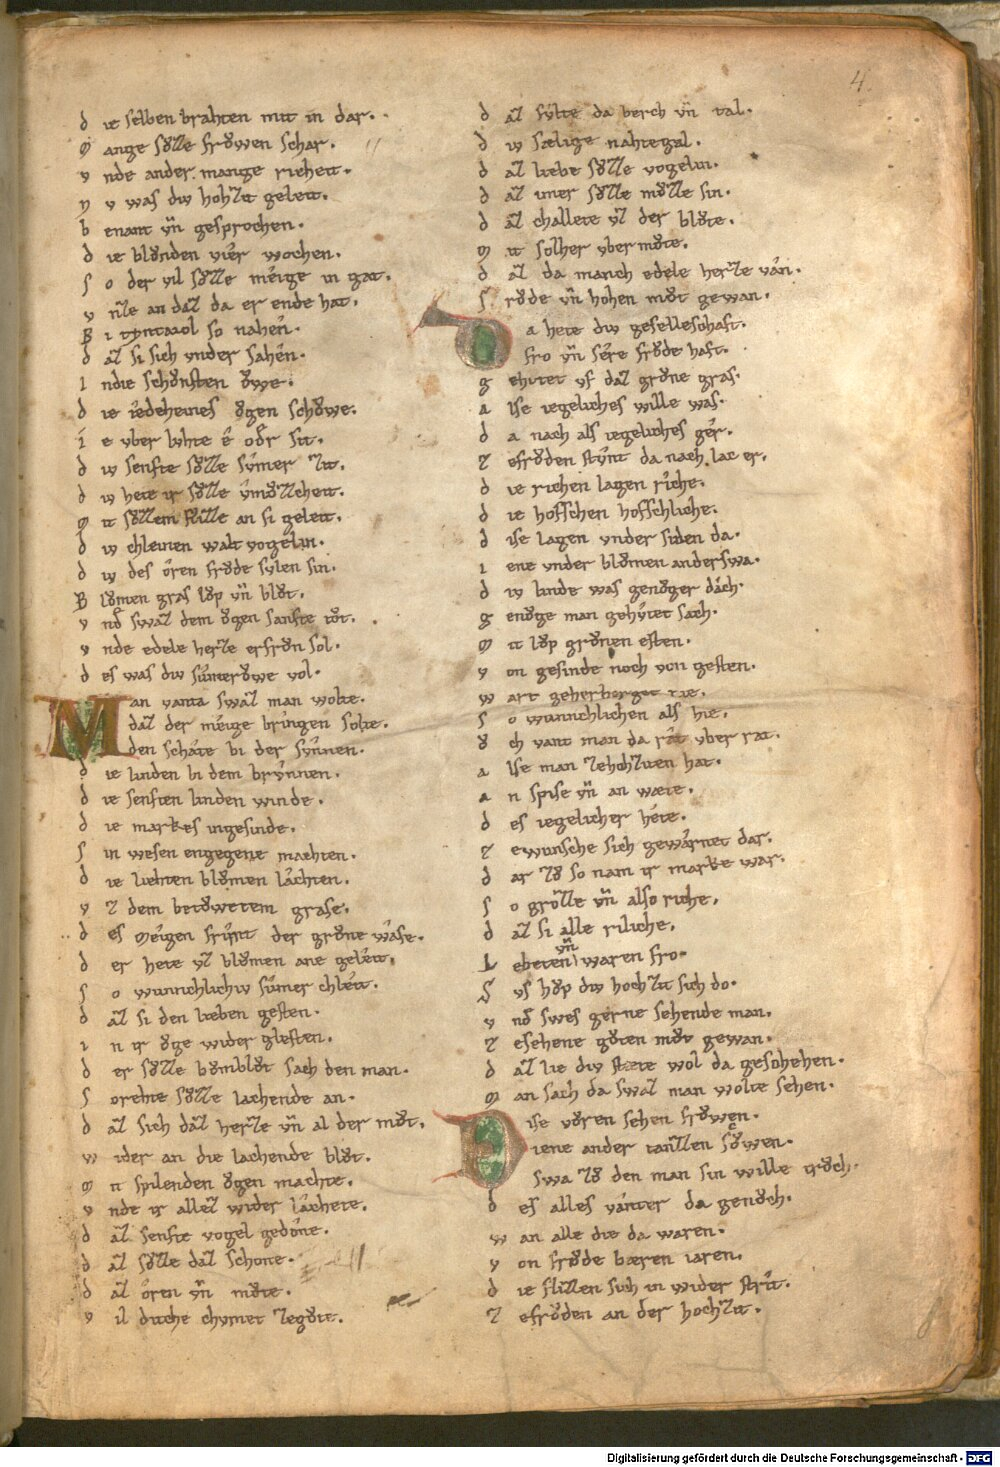 die selben brahten mit in dar.
mange sůzze frůwen schar.
vnde ander mange richeit.
nv was div hohzit geleit.
benant vn̄ gesprochen.
die blůnden vier wochen.
so der vil sůzze meige in gat.
vnze an daz da er ende hat.
Bi tyntaiol so nahen.
daz si sich vnder sahen.
Indie schonsten ůwe.
die iedeheines ůgen schůwe.
ie vber luhte e oder sit.
div senfte sůzze sumer zit.
div hete ir sůzze vnmůzzcheit.
mit sůzzem flizze an si geleit.
div chleinen walt vogelin.
div des oren frůde sulen sin.
Blůmen gras lůp vn̄ blůt.
vnd swaz dem ůgen sanfte tůt.
vnde edele herze erfrůn sol.
des was div sumerůwe vol.
Man vant a swaz man wolte.
daz der meige bringen solte.
den schate bi der sunnen.
die linden bi dem brunnen.
die senften linden winde.
die markes ingesinde.
sin wesen engegene machten.
die liehten blůmen lachten.
vz dem betůwetem grase.
des meigen friunt der grůne wase.
der hete vz blůmen ane geleit.
so wunnichlichiv sumer chleit.
daz si den lieben gesten.
in ir ůge wider glesten.
der sůzze bůmblůt sach den man.
so rehte sůzze lachende an.
daz sich daz herze vn̄ al der můt.
wider an die lachende blůt.
mit spilenden ůgen machte.
vnde ir allez wider lachete.
daz senfte vogel gedone.
daz sůzze daz schone.
daz oren vn̄ můte.
vil diche chumet zegůte.
4.
daz fulte da berch vn̄ tal.
div sælige nahtegal.
daz liebe sůzze vogelin.
daz imer sůzze můzze sin.
daz challete vz der blůte.
mit solher vber můte.
daz da manch edele herze van.
frůde vn̄ hohen můt gewan.
Da hete div geselleschaft.
fro vn̄ sere frůde haft.
gehutet vf daz grůne gras.
alse iegeliches wille was.
da nach als iegeliches ger.
zefrůden stunt da nach lac er.
die richen lagen riche.
die hofschen hofschliche.
dise lagen vnder siden da.
iene vnder blůmen anderswa.
div linde was genůger dach.
genůge man gehutet sach.
mit lůp grůnen esten.
von gesinde noch von gesten.
wart geherberget nie.
so wunnichlichen als hie.
ůch vant man da rat vber rat.
alse man zehohziten hat.
an spise vn̄ an wæte.
des iegelicher hete.
zewunsche sich gewarnet dar.
dar zů so nam ir marke war.
so grozze vn̄ also riche.
daz si alle riliche.
Lebeten vn̄ waren fro.
Svs hůp div hochzit sich do.
vnd swes gerne sehende man.
zesehene gůten můt gewan.
daz lie div stæte wol da geschehen.
man sach da swaz man wolte sehen.
Dise vůren sehen frůwen.
iene ander tanzzen sců̊wen.
swa zů den man sin wille trůch.
des alles vanter da genůch.
wan alle die da waren.
von frůde bæren iaren.
die flizzen sich in wider strit.
zefrůden an der hochzit.
Digitalisierung gefördert durch die Deutsche Forschungsgemeinschaft - DFG